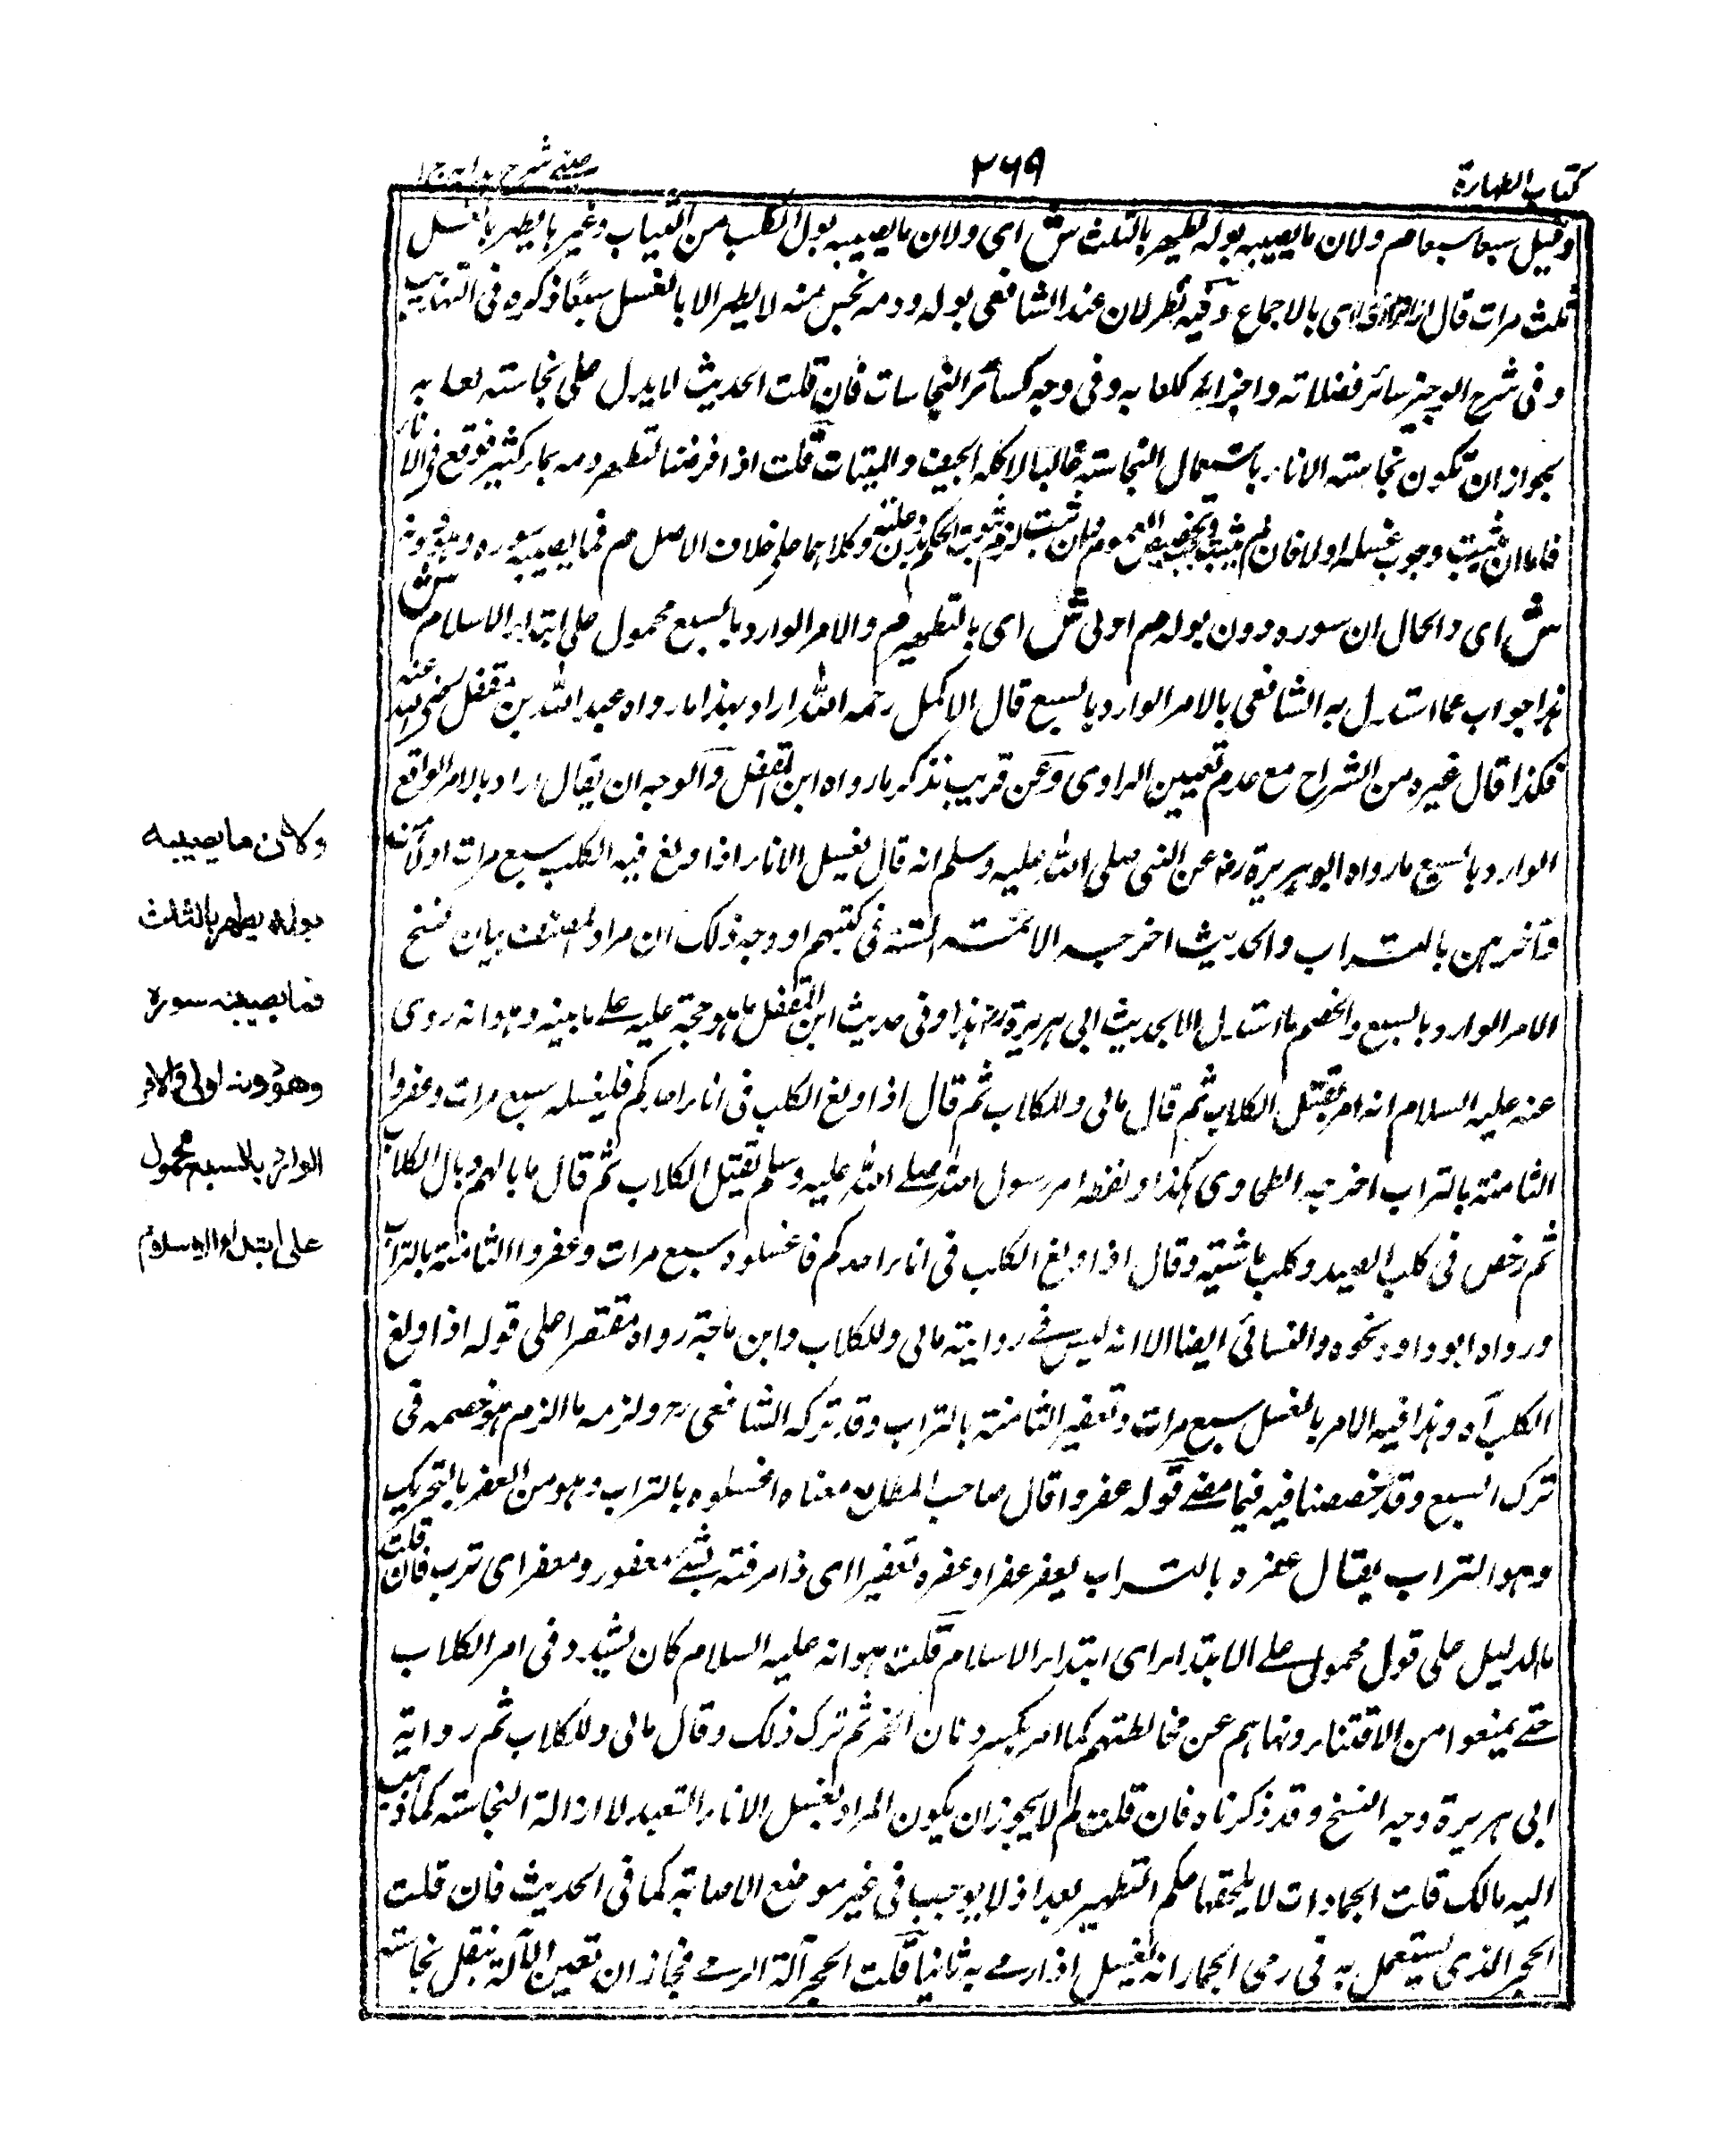 كتاب الطهارة
٢٦٩
عيني شرح هداية ج ١
وقيل سبعا سبعا م ولان ما يصيبه بوله يطهر بالثلث ش اى ولان ما يصيبه بول الكلب من الثياب وغيرها يطهر بالغسل
ثلث مرات قال الاترازى اى بالاجماع وفيه نظر لان عند الشافعى بوله ودمه نجس منه لا يطهر الا بالغسل سبعا ذكره فى التهذيب
وفى شرح الوجيز سائر فضلاته واجزائه كلعابه وفى وجه كسائر النجاسات فان قلت الحديث لا يدل على نجاسته لعابه
بجواز ان تكون نجاسته الاناء باستعمال النجاسته غالبا لاكله الجيف والميتات قلت اذا فرضنا لتطهر دمه بماء كثير فوقع فى الاناء
فاما ان يثبت وجوب غسله اولا فان لم يثبت وجب تخصيص العموم وان ثبت لزم ثبوت الحكم بدون علته وكلاهما على خلاف الاصل م فما يصيبه سوره وهو دونه
ش اى والحال ان سوره دون بوله م اولى ش اى بالتطهير م والامر الوارد بالسبع محمول على ابتداء الاسلام ش
هذا جواب عما استدل به الشافعى بالامر الوارد بالسبع قال الاكمل رحمه الله اراد بهذا ما رواه عبد الله بن مغفل رضى الله عنه
فكذا قال غيره من الشراح مع عدم تعيين الراوى وعن قريب نذكر ما رواه ابن المغفل والوجه ان يقال اراد بالامر الواقع
الوارد بالسبع ما رواه ابو هريرة رض عن النبى صلى الله عليه وسلم انه قال يغسل الاناء اذا ولغ فيه الكلب سبع مرات اولاهن
وآخرهن بالتراب والحديث اخرجه الائمته الستة فى كتبهم ووجه ذلك ان مراد المصنف بيان نسخ
الامر الوارد بالسبع والخصم ما استدل الا بحديث ابى هريرة رض هذا وفى حديث ابن المغفل ما هو حجة عليه على ما بينه وهو انه روى
عنه عليه السلام انه امر بقتل الكلاب ثم قال مالى وللكلاب ثم قال اذا ولغ الكلب فى اناء احدكم فليغسله سبع مرات وعفروا
الثامنته بالتراب اخرجه الطحاوى هكذا ولفظه امر رسول الله صلے الله عليه وسلم بقتل الكلاب ثم قال ما بالهم وبال الكلاب
ثم رخص فى كلب الصيد وكلب ماشيته وقال اذا ولغ الكلب فى اناء احدكم فاغسلوه سبع مرات وعفروا الثامنته بالتراب
ورواه ابو داود نحوه والنسائى ايضا الا انه ليس فے روايته مالى وللكلاب وابن ماجة رواه مقتصرا على قوله اذا ولغ
الكلب آه وهذا فيه الامر بالغسل سبع مرات وتعفير الثامنته بالتراب وقد تركه الشافعى رح ولزمه ما الزم هو خصمه فى
ترك السبع وقد خصصنا فيه فيما مضے قوله عفروا قال صاحب المطالع معناه اغسلوه بالتراب وهو من العفر بالتحريك
وهو التراب يقال عفره بالتراب يعفر عفرا وعفره تعفيرا اى ذا مرفته بشے معفور ومعفر اى ترب فان قلت
ما الدليل على قول محمول على الابتداء اى ابتداء الاسلام قلت هو انه عليه السلام كان يشدد فى امر الكلاب
حتے يمنعوا من الاقتناء ونهاهم عن مخالطتهم كما امر بكسر دنان الخمر ثم ترك ذلك وقال مالى وللكلاب ثم رواية
ابى هريرة وجه النسخ وقد ذكرناه فان قلت لم لا يجوز ان يكون المراد بغسل الاناء التعبد لا ازالة النجاسته كما ذهب
اليه مالك قلت الجمادات لا يلحقها حكم التطهير تعبدا اذ لا يوجب فى غير موضع الاصابة كما فى الحديث فان قلت
الحجر الذى يستعمل به فى رمى الجمار انه يغسل اذا رمے به ثانيا قلت الحجر آلة الرمے فجاز ان تعين الآلة بنقل نجاسته
ولان ما يصيبه
بوله يطهر بالثلث
فما يصيبه سوره
وهو دونه اولى والامر
الوارد بالسبع محمول
على ابتداء الاسلام